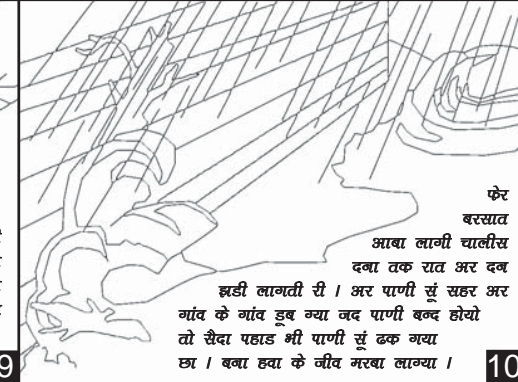 फेर
बरसात
आबा लागी चालीस
दना तक रात अर दन
झडी लागती री । अर पाणी सूं सहर अर
गांव के गांव डूब ग्या जद पाणी बन्द होयो
तो सैदा पहाड भी पाणी सूं ढक गया
छा । बना हवा के जीव मरबा लाग्या ।
9
10